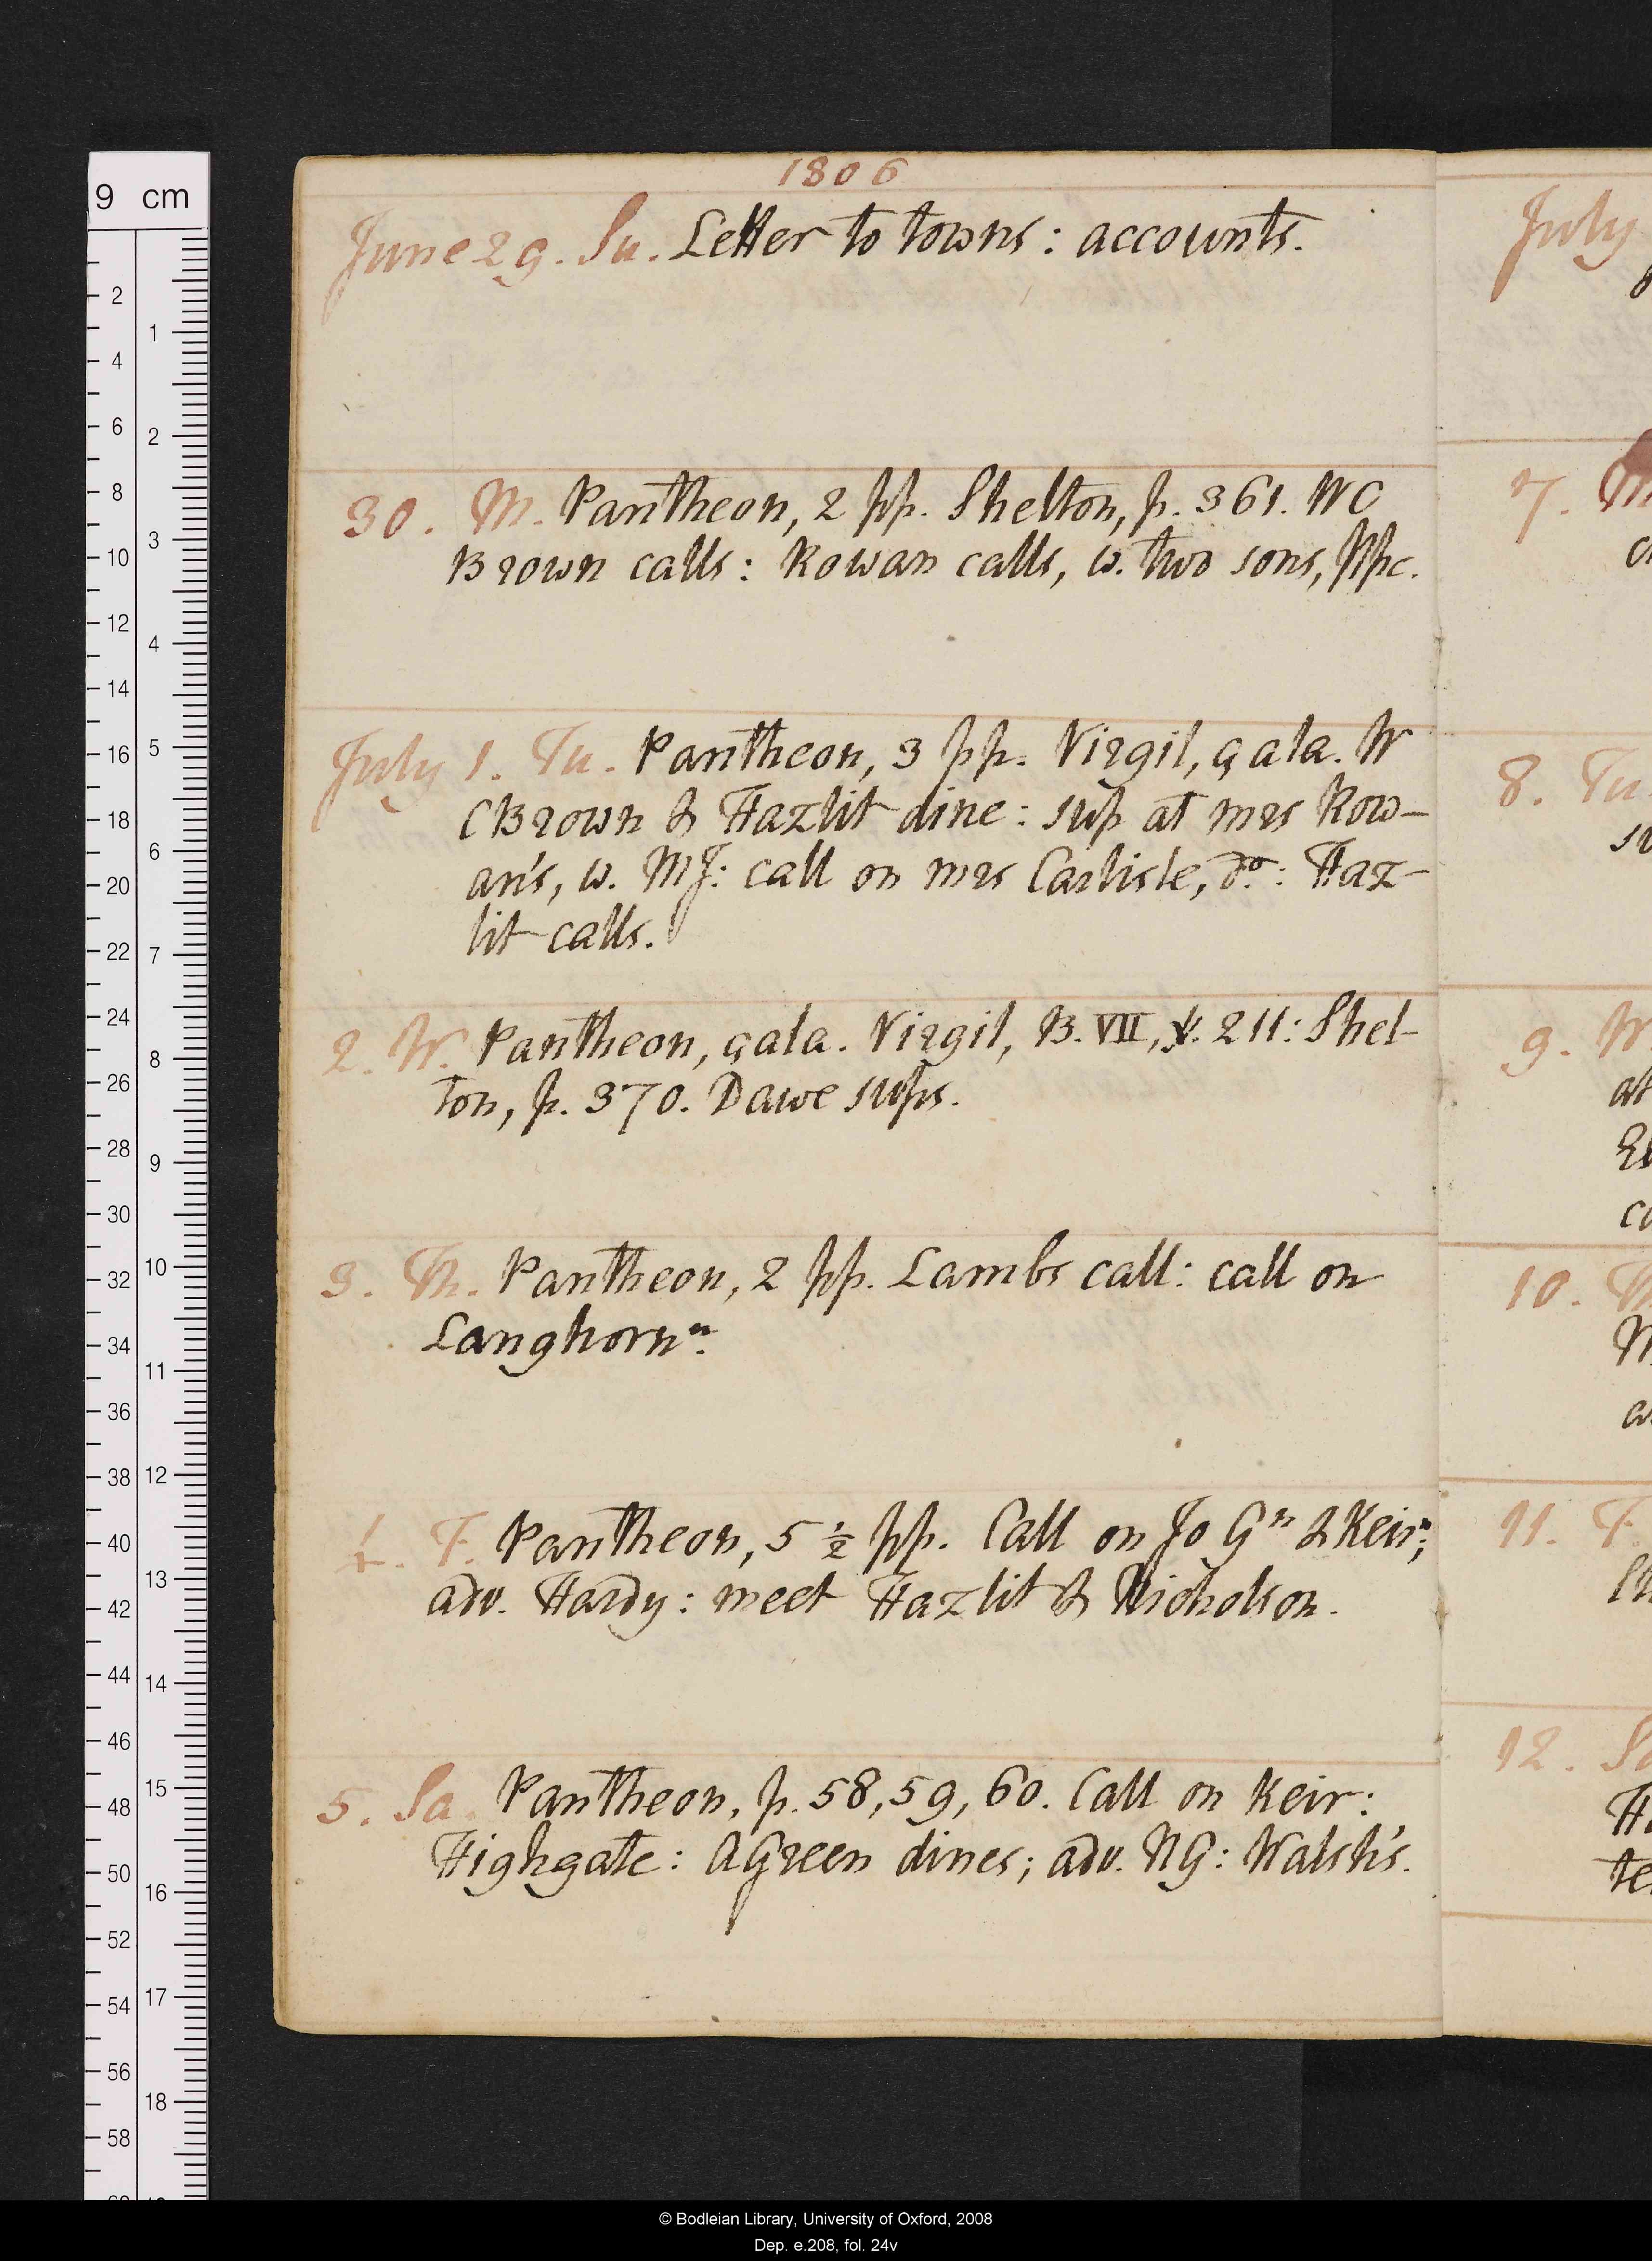 1806
June 29. Su. Letter to towns: accounts.
30. M. Pantheon, 2 pp. Shelton, p. 361. W C
Brown calls: Rowan calls, w. two sons, ppc.
July 1. Tu. Pantheon, 3 pp. Virgil, çala. W
C Brown & Hazlit dine: sup at mrs Row-
an's, w. MJ: call on mrs Carlisle, do: Haz-
lit calls.
2. W. Pantheon, çala. Virgil, B. VII, v. 211: Shel-
ton, p. 370. Dawe sups.
3. Th. Pantheon, 2 pp. Lambs call: call on
Langhorn n.
4. F. Pantheon, 5 ½ pp. Call on Jo Gn & Keir n;
adv. Hardy: meet Hazlit & Nicholson.
5. Sa. Pantheon, p. 58, 59, 60. Call on Keir:
Highgate: A Green dines; adv. NG: Walsh's.
July
7.
8. Tu
su
9. W
at
El
ca
10.
11. F
12. Sa
te
9 cm
2 4 6 8 10 12 14 16 18 20 22 24 26 28 30 32 34 36 38 40 42 44 46 48 50 52 54 56 58
1 2 3 4 5 6 7 8 9 10 11 12 13 14 15 16 17 18
© Bodleian Library, University of Oxford, 2008
Dep. e.208, fol. 24v